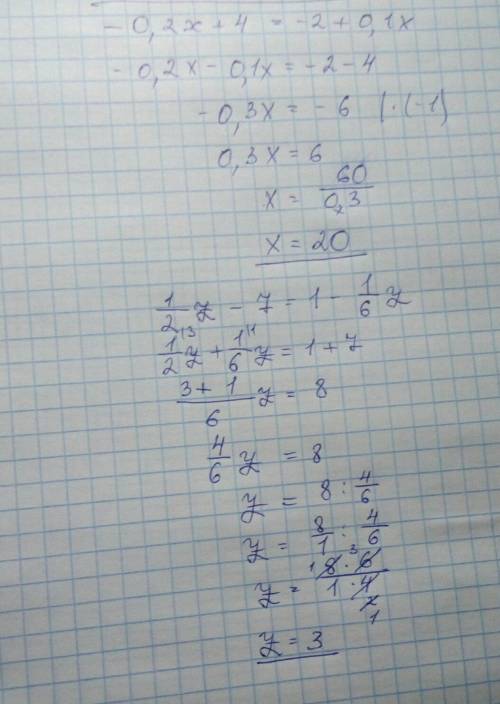 - 0,2x + 4 = -2 + 0,1x
- 0,2x - 0,1x = -2 - 4
- 0,3x = - 6 | · (-1)
0,3x = 6
x = 60/0,3
x = 20
1/2 y - 7 = 1 - 1/6 y
1/2 |3 y + 1/6 |1 y = 1 + 7
3 + 1/6 y = 8
4/6 y = 8
y = 8 : 4/6
y = 8/1 : 4/6
y = 1 8 · 3 6/1 · 4 2 1
y = 3